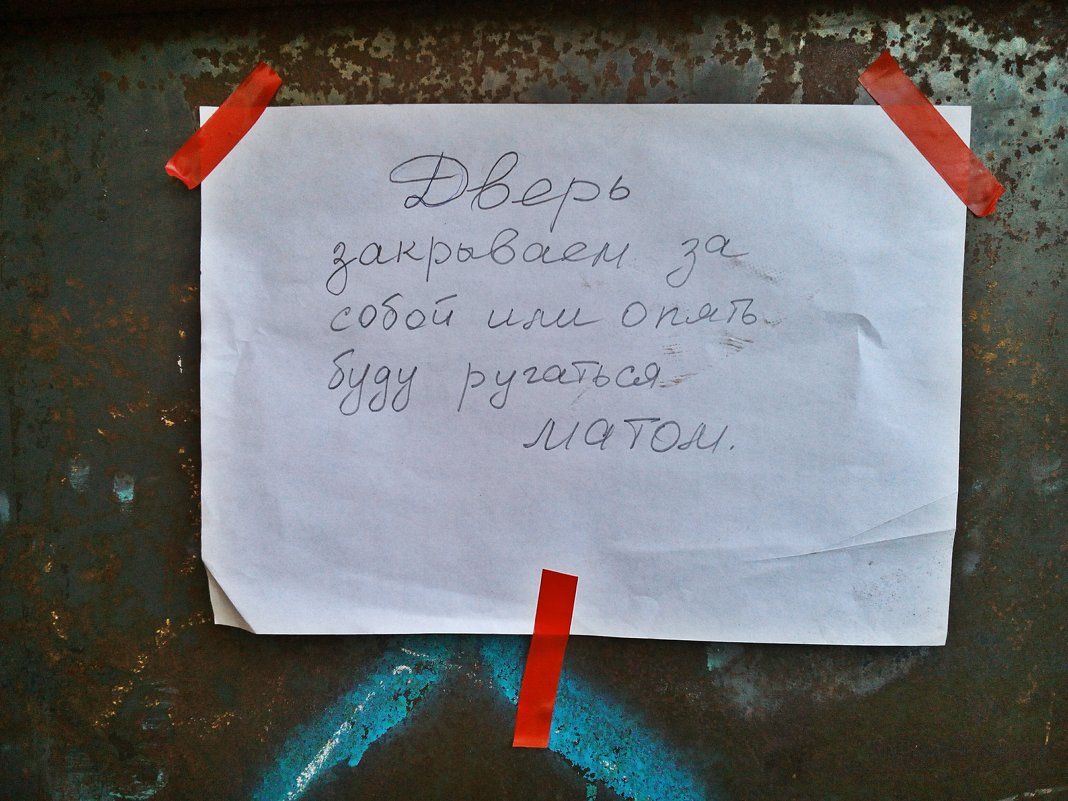 Дверь
закрываем за
собой или опять
буду ругаться
матом.